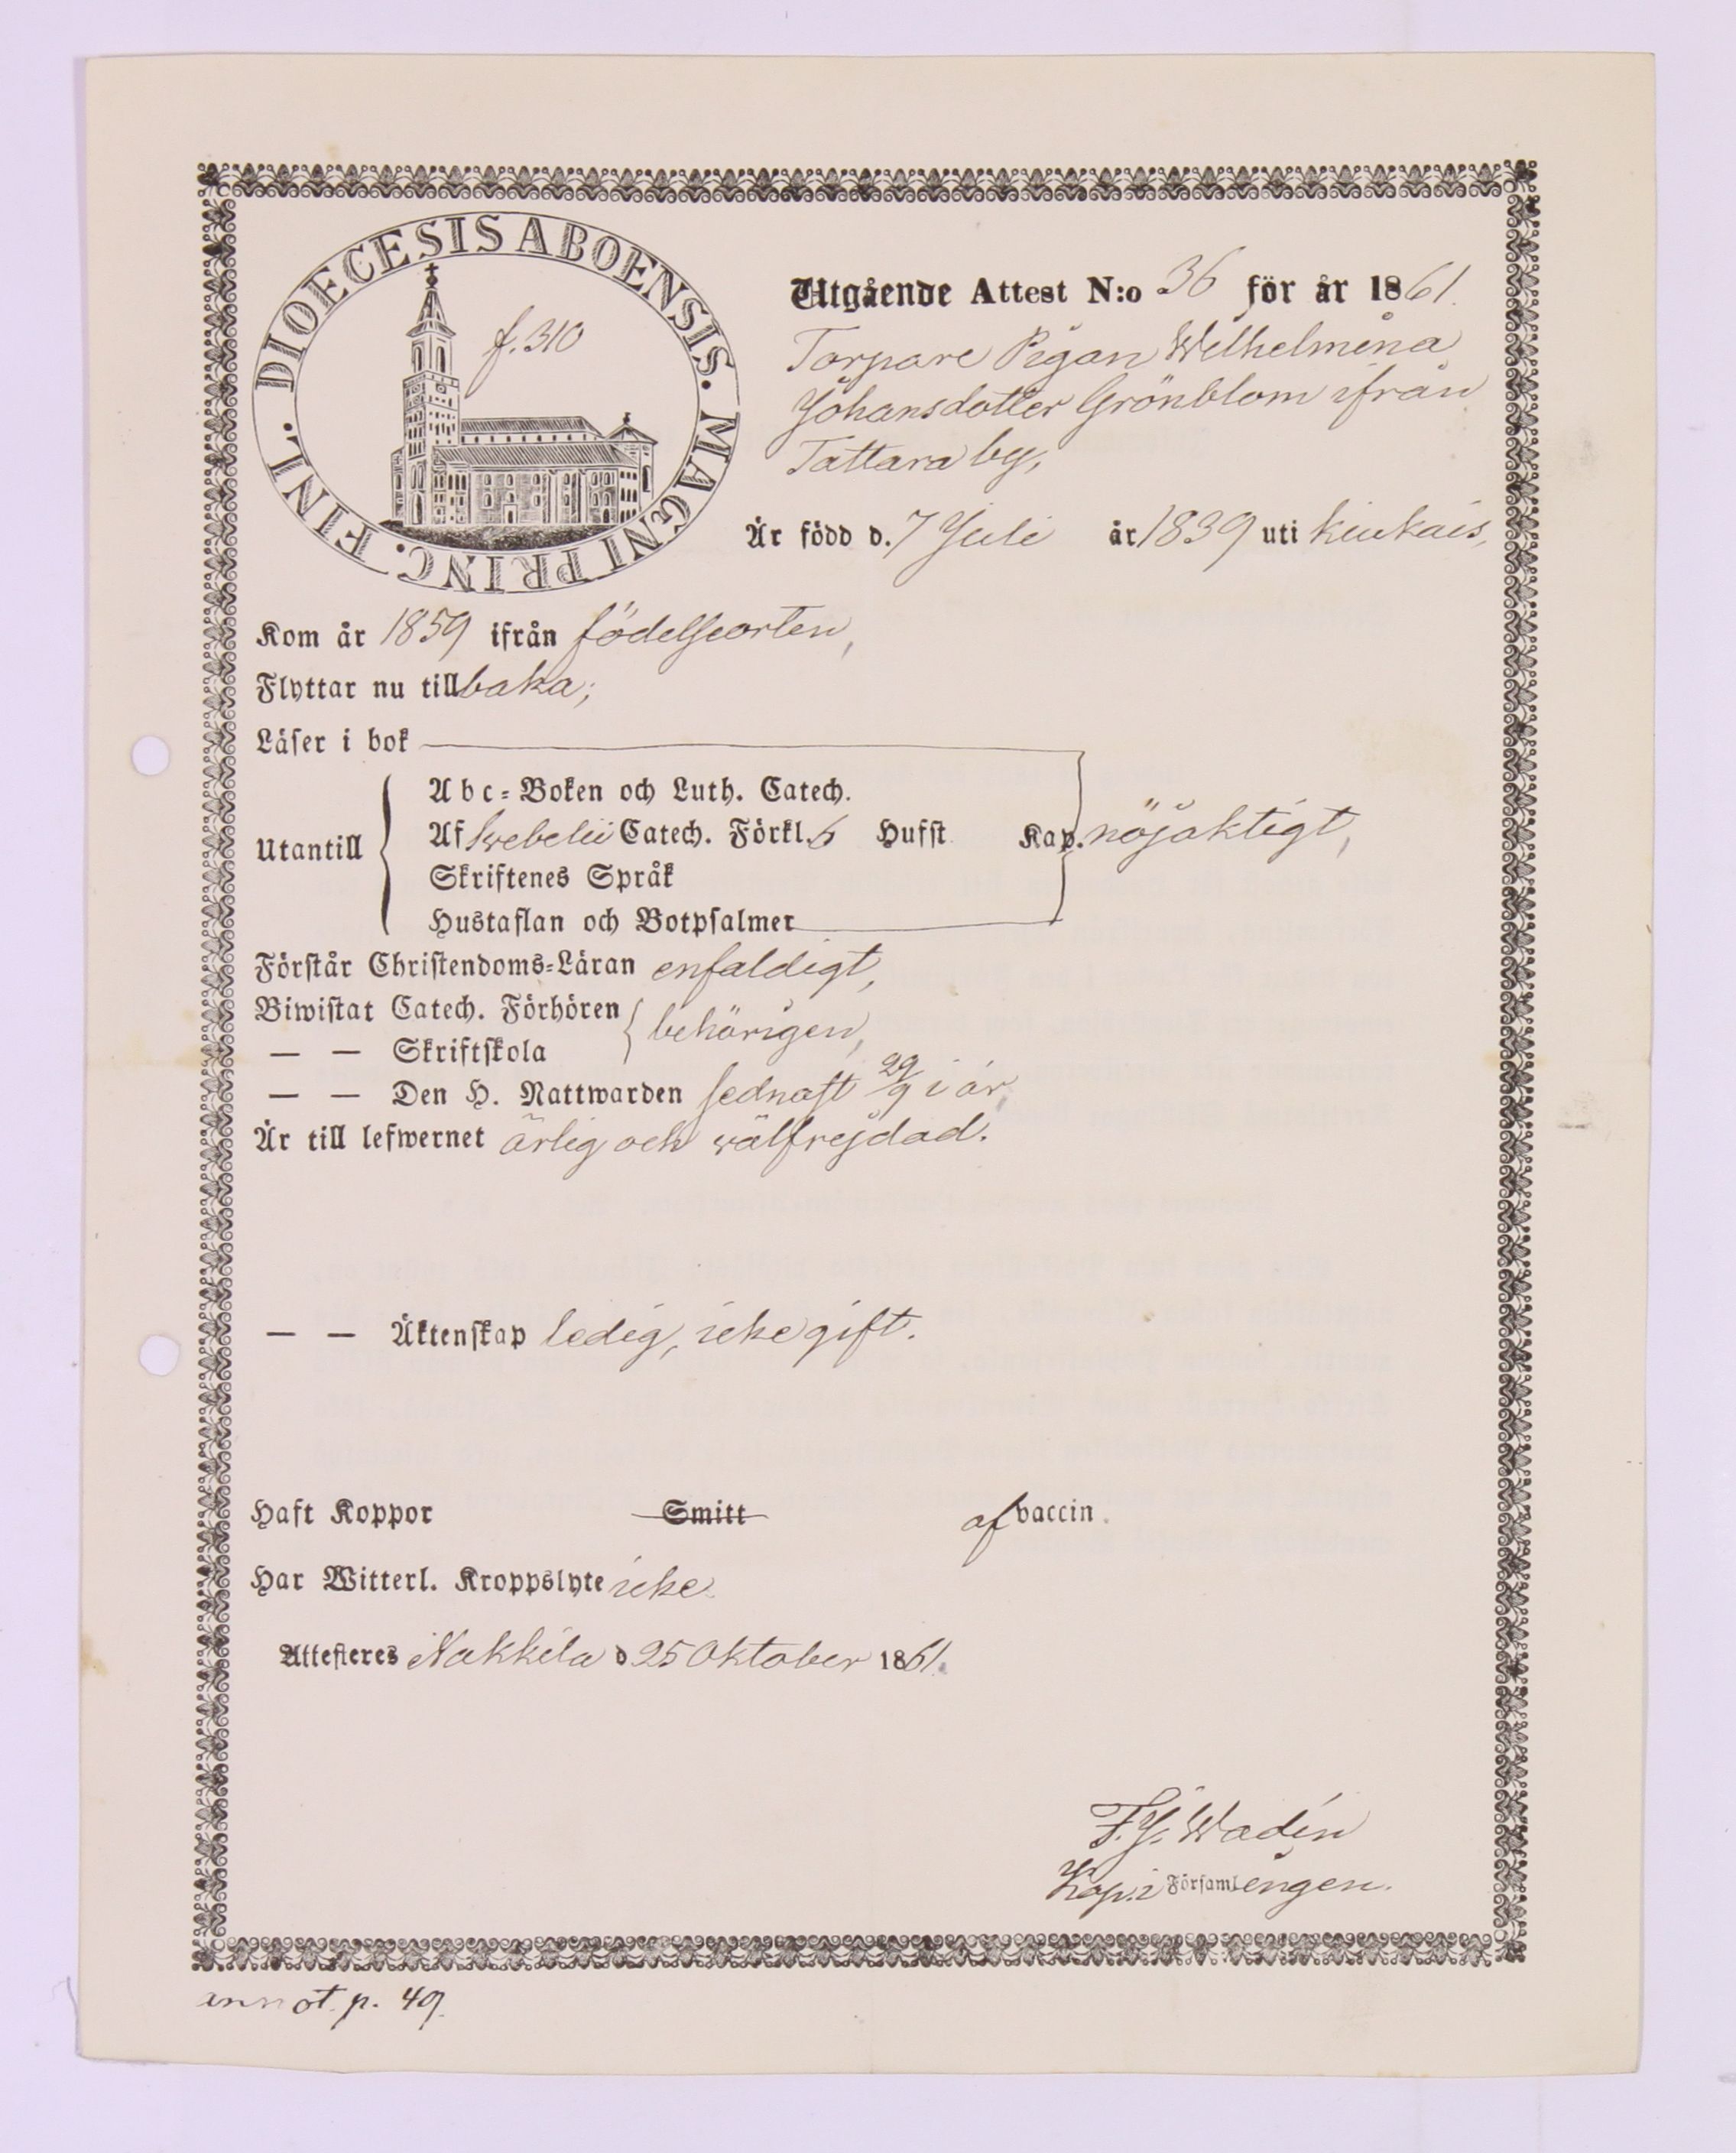 DIOECESIS ABOENSIS. MAGNI PRINC. FINL.
f. 310
Utgående Attest N:o 36 för år 1861.
Torpare Pigan Wilhelmina
Johansdotter Grönblom ifrån
Tattara by,
Är född d. 7 Juli år 1839 uti Kiukais,
Kom år 1859 ifrån födelseorten,
Flyttar nu tillbaka;
Läser i bok
Abc-Boken och Luth. Catech.
Utantill Af Swebelii Catech. Förkl. 6 Hufst. Kap. nöjaktigt,
Skriftenes Språk
Hustaflan och Botpsalmer
Förstår Christendoms-Läran enfaldigt,
Biwistat Catech. Förhören behörigen,
— — Skriftskola
— — Den H. Nattwarden sednast 29/9 i år,
Är till lefwernet ärlig och wälfrejdad.
— — Äktenskap ledig, icke gift.
Haft Koppor Smitt af vaccin.
Har Witterl. Kroppslyte icke
Attesteres Nakkila d 25 Oktober 1861.
F. J. Wadén
Kap. i Församlingen.
annot. p. 49.